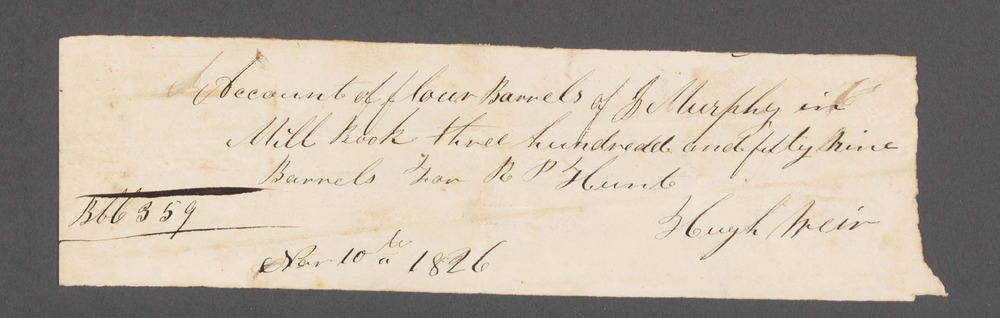 Account of flour Barrels of J Murphy in
Mill Book three hundredd and fifty Nine
Barrels For R P Hunt
Bbb 359
Hugh Weir
Nov 10th 1826